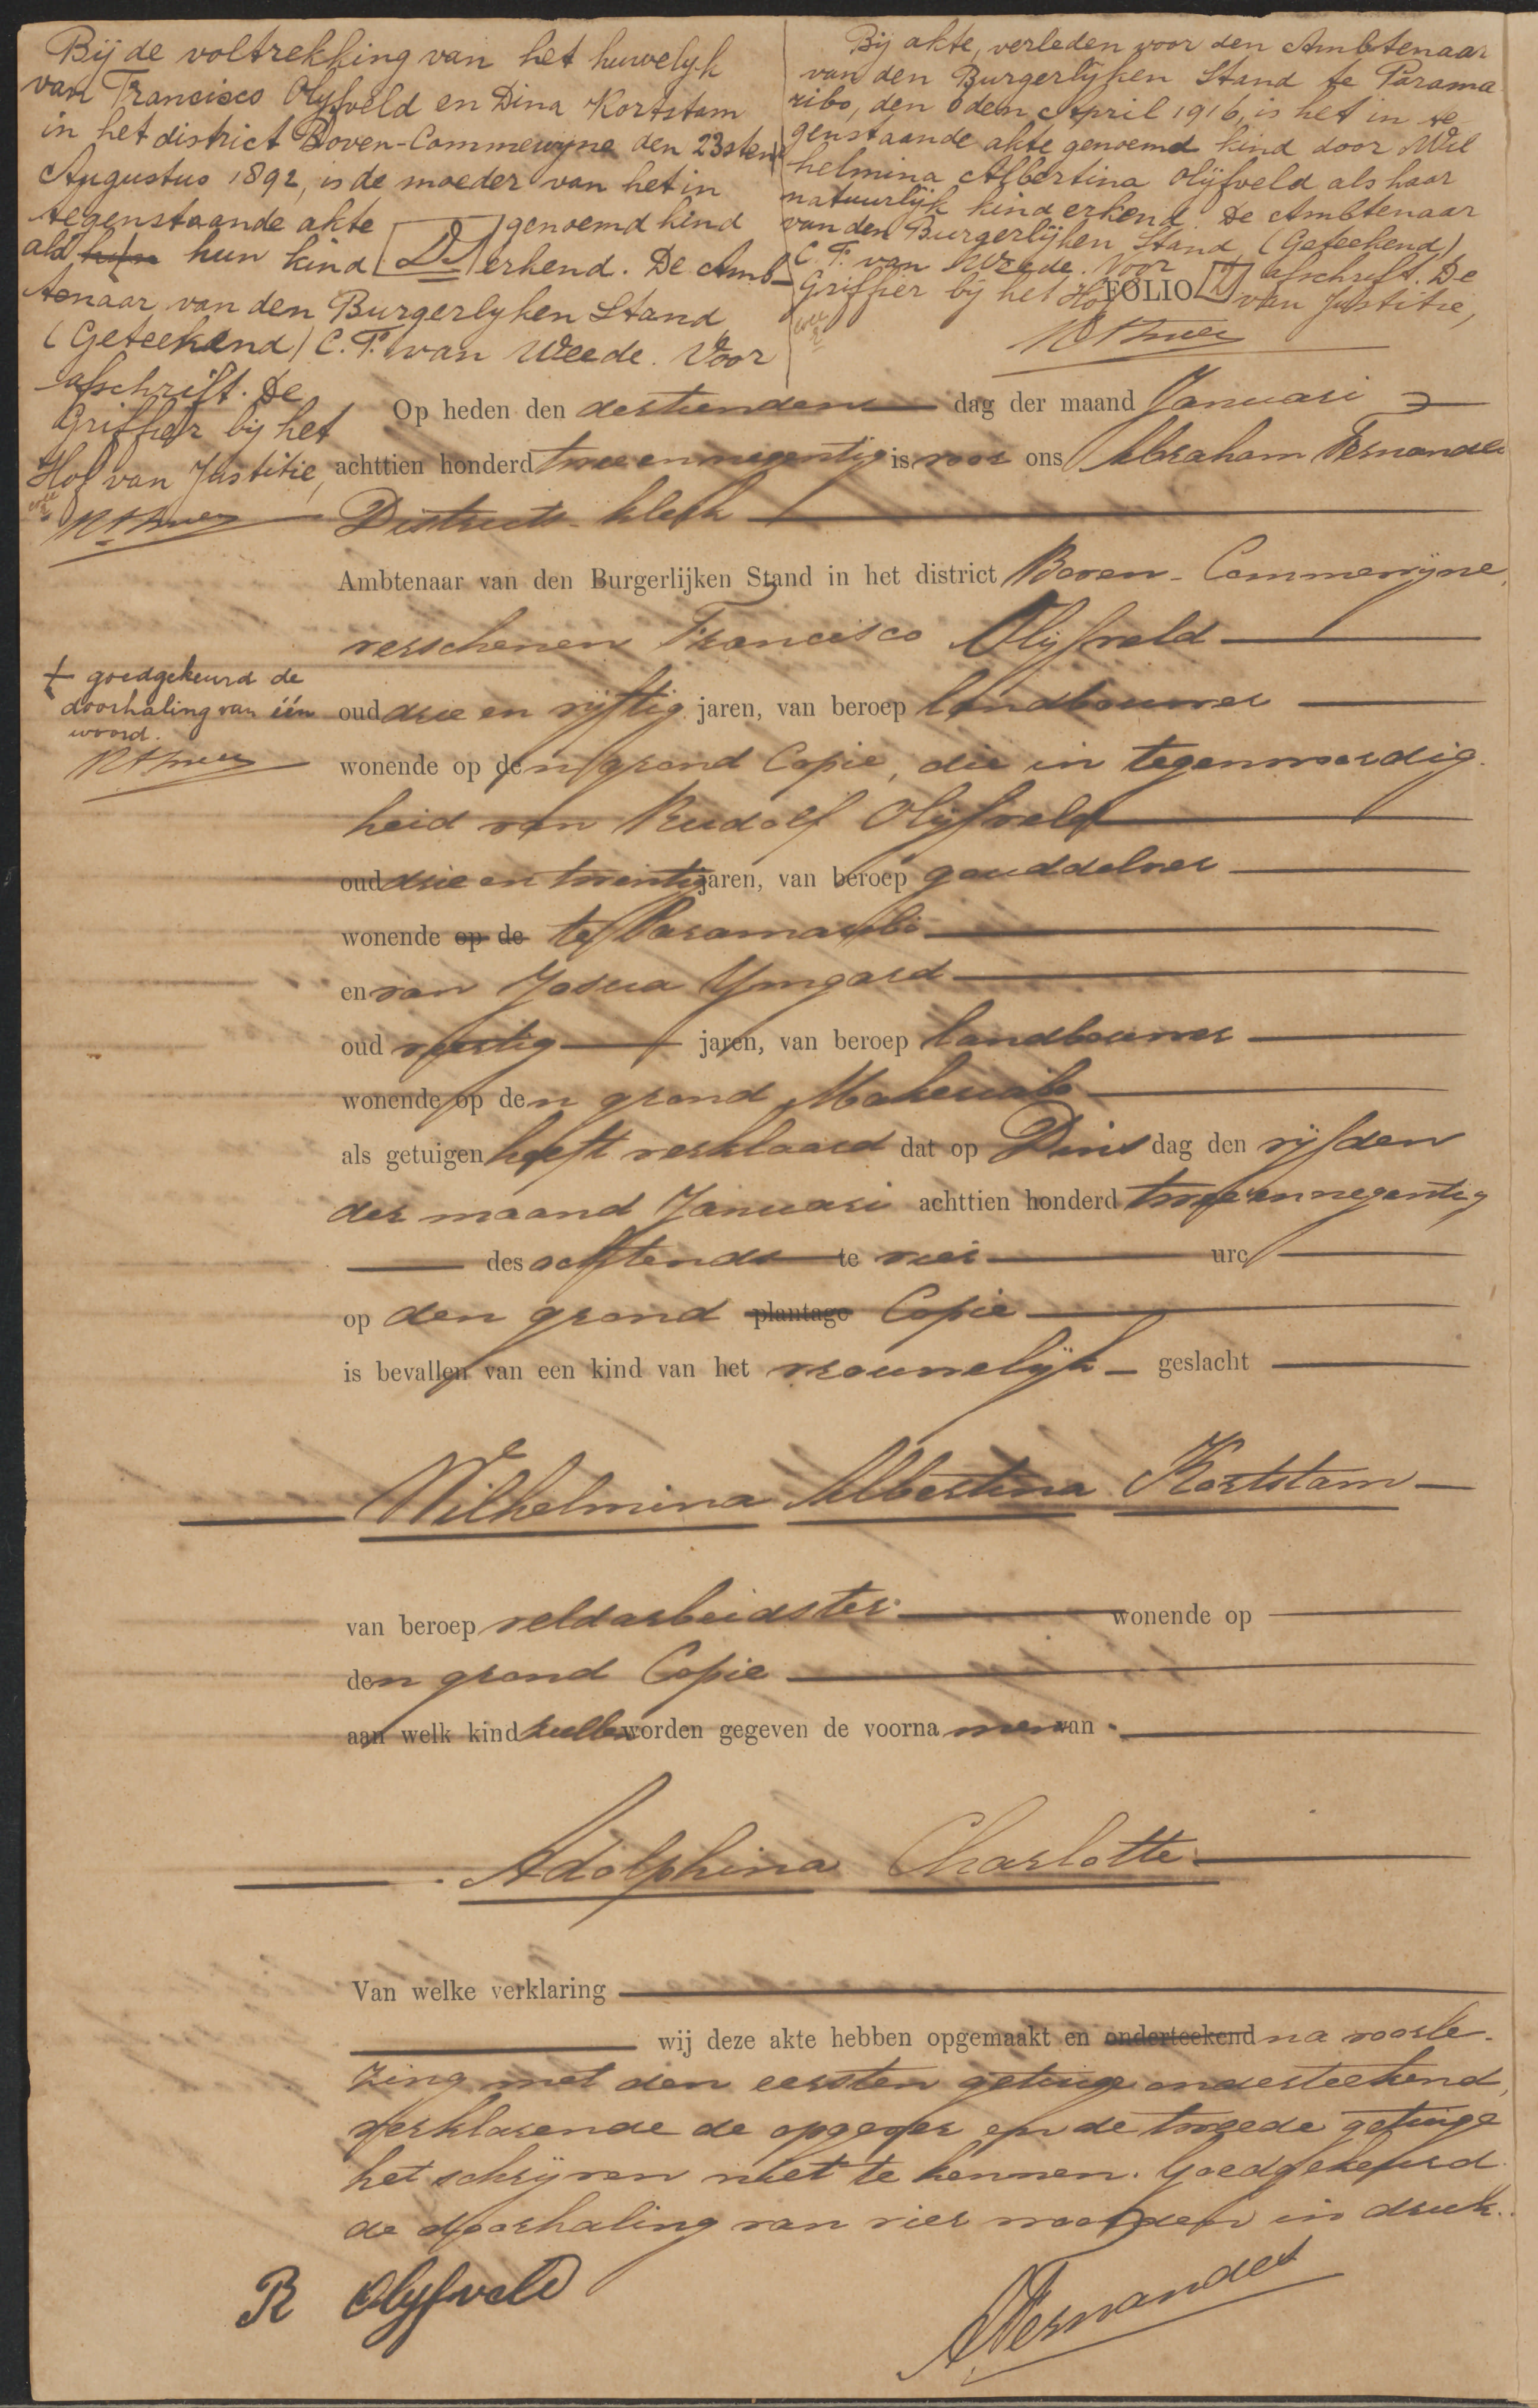 Bij de voltrekking van het huwelyk
van Francisco Olijfveld en Dina Kortstam
in het district Boven-Commewyne den 23sten
Augustus 1892, is de moeder van het in
tegenstaande akte genoemd kind
als hun kind erkend. De Amb-
tenaar van den Burgerlyken Stand
(Geteekend) C. F. van Weede. Voor
afschrift. De
Griffier bij het
Hof van Justitie,
Bij akte, verleden voor den Ambtenaar
van den Burgerlijken Stand te Parama
ribo, den dem April 1916, is het in te
genstaande akte genoemd kind door Wil
helmina Albertina Olijfveld als haar
natuurlijk kind erkend. De Ambtenaar
van den Burgerlijken Stand (Geteekend)
C. F. van Weede. Voor afschrift. De
Griffier bij het Hof van Justitie,
FOLIO
Op heden den dertienden dag der maand Januari
achttien honderd twee en negentig is voor ons Abraham Fernandes
Districts-klerk
Ambtenaar van den Burgerlijken Stand in het district Boven-Commewijne,
verschenen Francisco Olijfveld
+ goedgekeurd de
doorhaling van één
woord.
oud drie en vijftig jaren, van beroep landbouwer
wonende op den grond Copie, die in tegenwoordig-
heid van Rudolf Olijfveld
oud drie en twintig jaren, van beroep gouddelver
wonende op de te Paramaribo
en van Josua Ymgard
oud veertig jaren, van beroep landbouwer
wonende op den grond
als getuigen heeft verklaard dat op Dinsdag den vijfden
der maand Januari achttien honderd twee en negentig
des ochtends te vier ure
op den grond plantage Copie
is bevallen van een kind van het vrouwelijk geslacht
Wilhelmina Albertina Kortstam
van beroep veldarbeidster wonende op
den grond Copie
aan welk kind zullen worden gegeven de voornamen van
Adolphina Charlotte
Van welke verklaring
wij deze akte hebben opgemaakt en onderteekend na voorle-
zing met den eersten getuige onderteekend,
verklarende de opgever en de tweede getuige
het schrijven niet te kennen. Goedgekeurd
de doorhaling van vier woorden in druk.
R Olijfveld
AFernandes